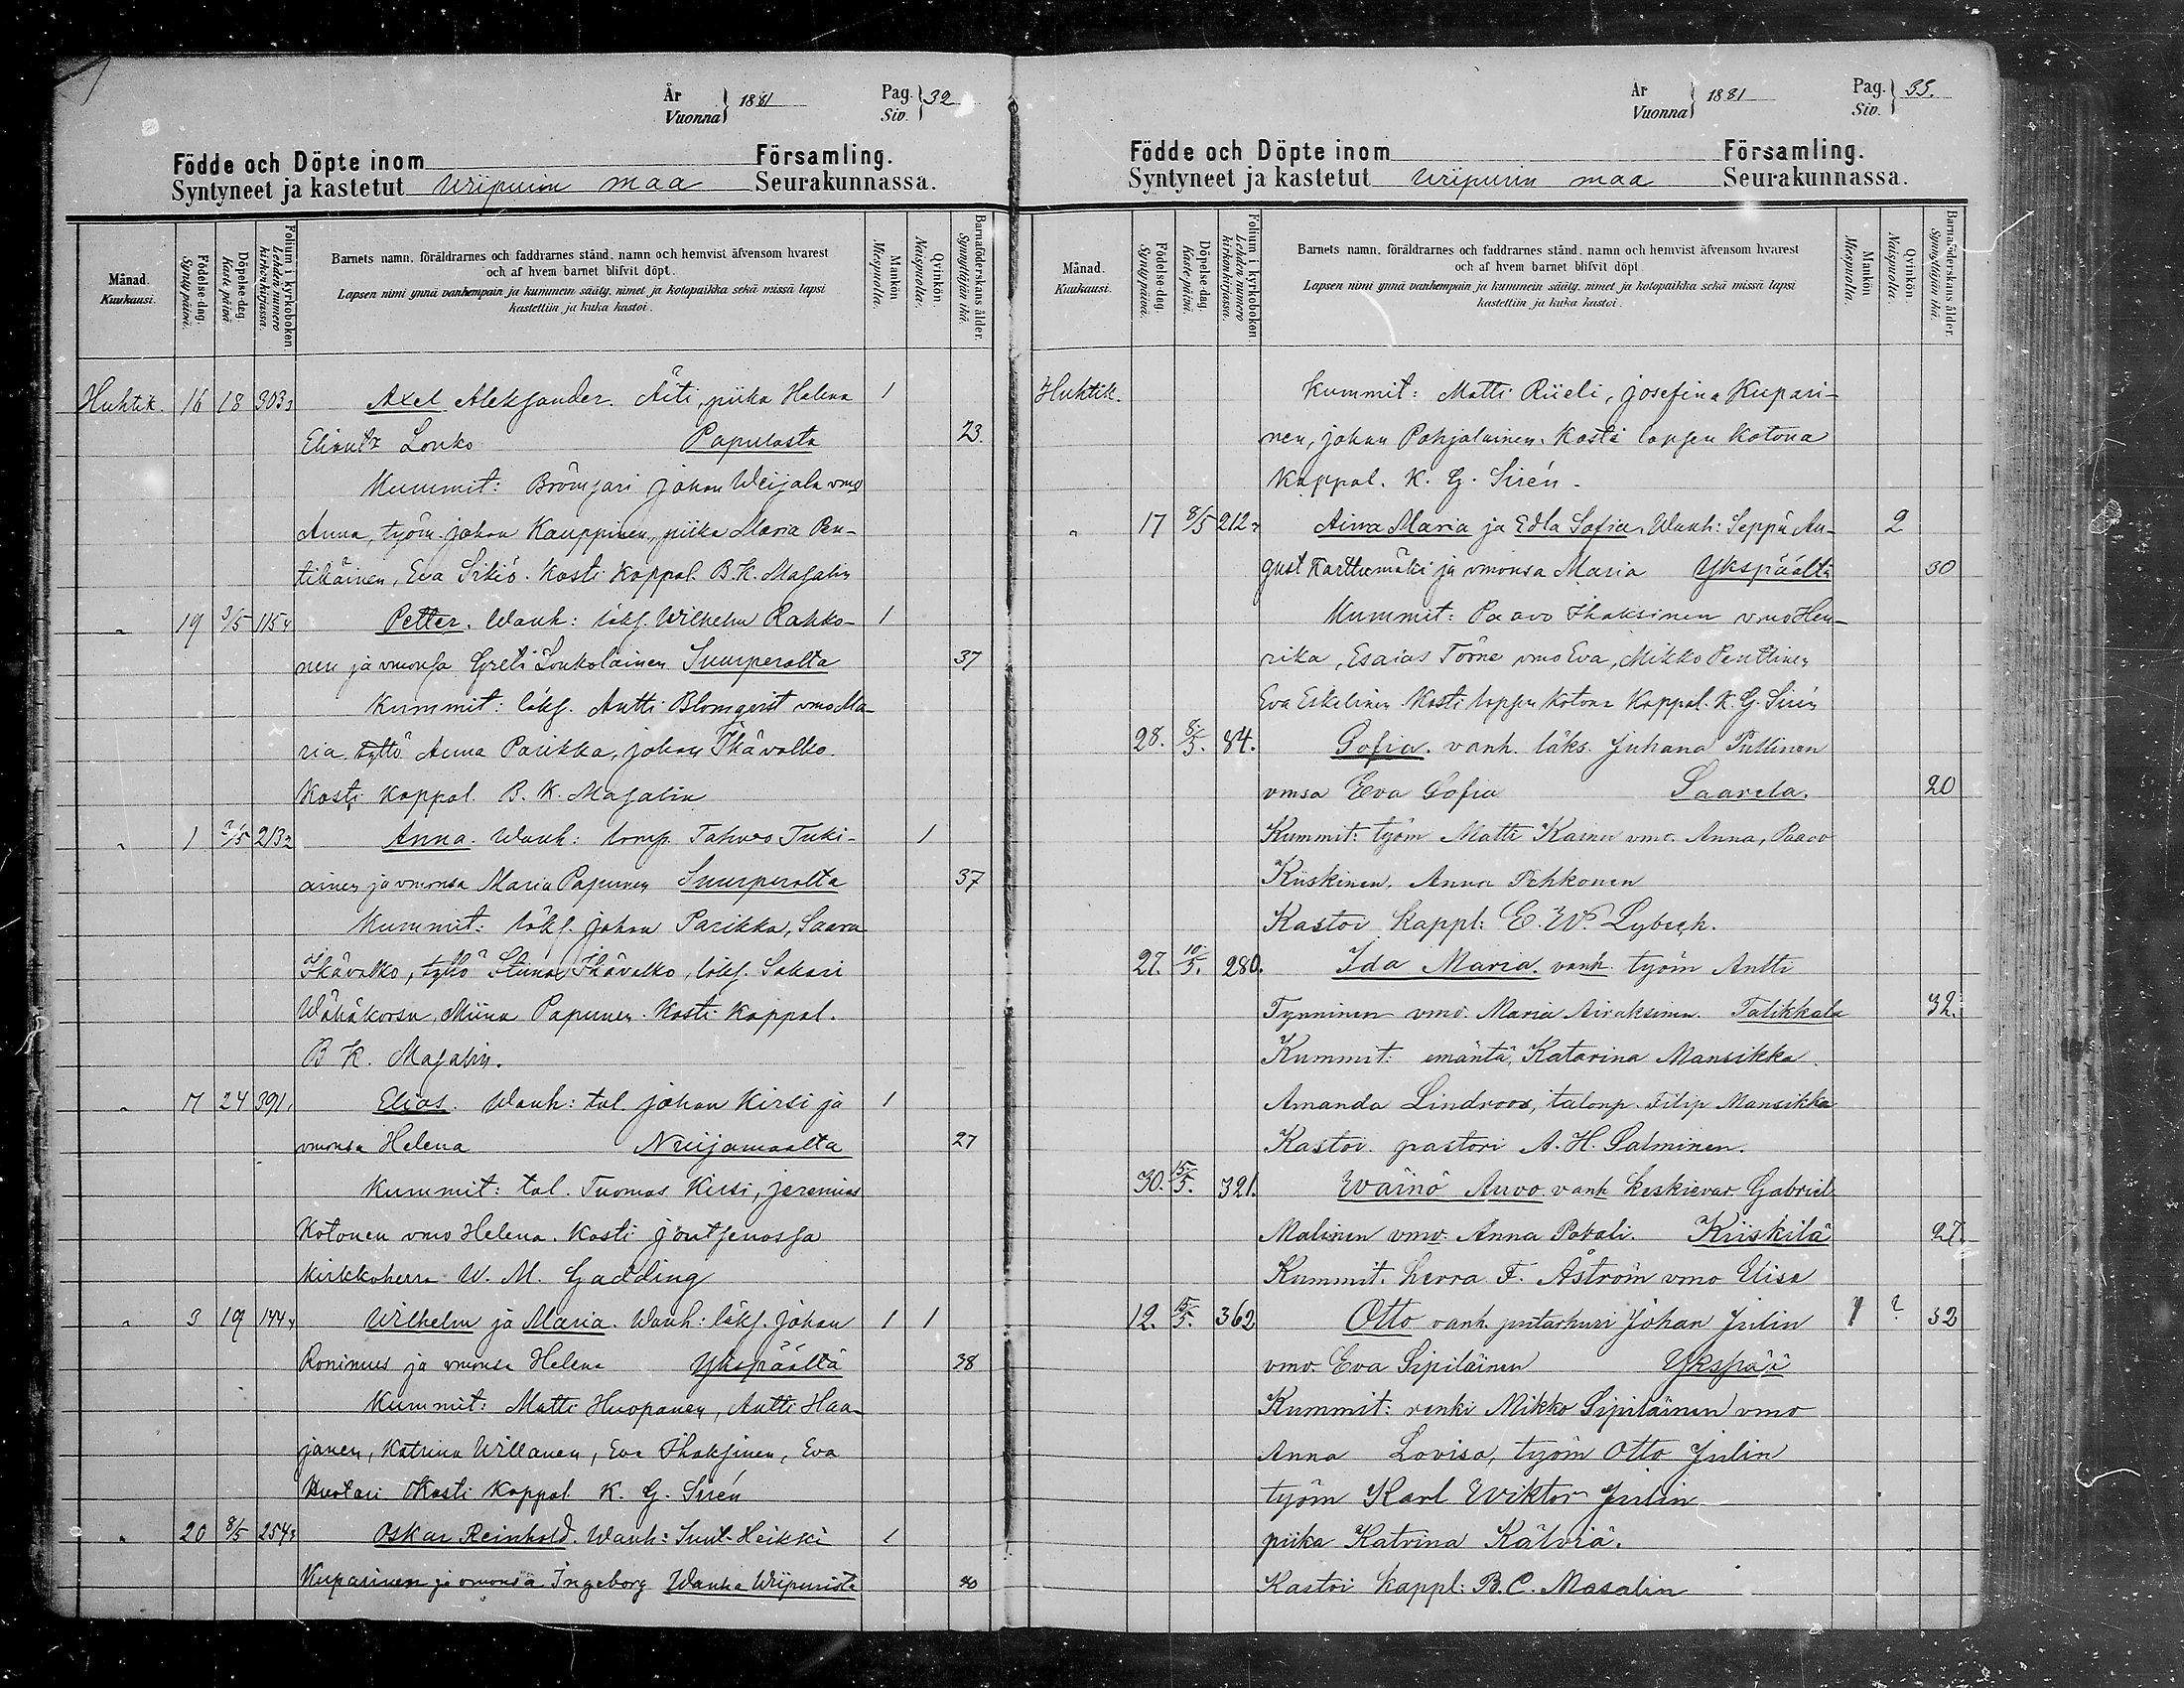 År Vuonna } 1881 Pag. Siv. } 32
Födde och Döpte inom Församling.
Syntyneet ja kastetut Wiipurin maa Seurakunnassa.
Månad. Kuukausi.
Födelse-dag. Synty päivä.
Döpelse-dag. Kaste päivä.
Folium i kyrkoboken Lehden numero kirkonkirjassa.
Barnets namn, föräldrarnes och faddrarnes stånd, namn och hemvist äfvensom hvarest
och af hvem barnet blifvit döpt.
Lapsen nimi ynnä vanhempain ja kummein sääty, nimet ja kotopaikka sekä missä lapsi
kastettiin ja kuka kastoi.
Mankön Miespuolta.
Qvinkön. Naispuolta.
Barnaföderskans ålder. Synnyttäjän ikä.
Huhtik. 16 18 303 Axel Aleksander. Äiti, piika Helena 1
Louko Papulasta 23.
Kummit: Johan Weijala vmo
Anna, työm. Johan Kauppinen, piika Maria Pen-
tikäinen, Eva Sikiö. Kasti Kappal. B. K. Masalin
" 19 3/5 115 Petter. Wanh: läks. Wilhelm Rahko- 1
nen ja vmonsa Greti Loukolainen Suurperolta 37
Kummit: läks. Antti Blomqvist vmo Ma-
ria, tyttö Anna Parikka, Johan Ihävalko.
Kasti Kappal. B. K. Masalin
" 1 3/5 213 Anna. Wanh: lomp. Tahvo Tuki- 1
ainen ja vmonsa Maria Papunen Suurperolta 37
Kummit: läks. Johan Parikka, Saara
Ihävalko, tyttö Stiina Ihävalko, läks. Sakari
Wähäkorsu, Miina Papunen. Kasti Kappal.
B K. Masalin.
" 17 24 391. Elias. Wanh: tal. Johan Kirsi ja 1
vmonsa Helena Nuijamaalta 27
Kummit: tal. Tuomas Kirsi, Jeremias
Kotonen vmo Helena. Kasti Joutsenossa
kirkkoherra W. M. Gadding
" 3 19 144 Wilhelm ja Maria. Wanh: läks. Johan 1 1
Ronimus ja vmonsa Helena Ykspäältä 38
Kummit: Matti Huopanen, Antti Haa-
janen, Katrina Willanen, Eva Ihaksinen, Eva
Huotari Kasti Kappal. K. G. Sirén
" 20 8/5 254 Oskar Reinhold. Wanh: Suut. Heikki 1
Kuparinen ja vmonsa Ingeborg Wanha Wiipurista 40
År Vuonna } 1881 Pag. Siv. } 35.
Födde och Döpte inom Församling.
Syntyneet ja kastetut Wiipurin maa Seurakunnassa.
Månad. Kuukausi.
Födelse-dag. Synty päivä.
Döpelse-dag. Kaste päivä.
Folium i kyrkoboken Lehden numero kirkonkirjassa.
Barnets namn, föräldrarnes och faddrarnes stånd, namn och hemvist äfvensom hvarest
och af hvem barnet blifvit döpt.
Lapsen nimi ynnä vanhempain ja kummein sääty, nimet ja kotopaikka sekä missä lapsi
kastettiin ja kuka kastoi.
Mankön Miespuolta.
Qvinkön. Naispuolta.
Barnaföderskans ålder. Synnyttäjän ikä.
Huhtik. Kummit: Matti Rüeli, Josefina Kupari-
nen, Johan Pohjalainen. Kasti lapsen kotona
Kappal. K. G. Sirén.
" 17 8/5 212 Aina Maria ja Edla Sofia. Wanh: Seppä Au- 2
gust Karttumäki ja vmonsa Maria Ykspäältä 30
Kummit: Paavo Ihaksinen vmo Hen-
rika, Esaias Törne vmo Eva, Mikko Penttinen
Eva Eskelinen. Kasti lapsen kotona Kappal. K. G. Sirén
28. 8/5. 84. Sofia. vanh. läks. Juhana Puttinen
vmsa Eva Sofia Saarela. 20
Kummit: työm Matti Kainu vmo. Anna, Paavo
Kiiskinen, Anna Pehkonen
Kastoi kappl: E. W. Lybeck.
27. 10/5. 280. Ida Maria. vanh työm Antti
Tynninen vmo. Maria Airaksinen. Talikkala 32.
Kummit: emäntä, Katarina Mansikka.
Amanda Lindroos, talonp. Filip Mansikka
Kastoi pastori A. H. Salminen.
30. 15/5. 321. Wäinö Arvo vanh keskievar Gabriel
Malinen vmo. Anna Kiiskilä 27.
Kummit. herra F. Åström vmo Elisa
12. 15/5. 362 Otto vanh. puutarhuri Johan Julin 1 ? 32
vmo. Eva Sipiläinen Ykspää
Kummit: renki Mikko Sipiläinen vmo
Anna Lovisa, työm Otto Julin
työm Karl Wiktor Julin
piika Katrina Kätviä.
Kastoi kappl: B. C. Masalin